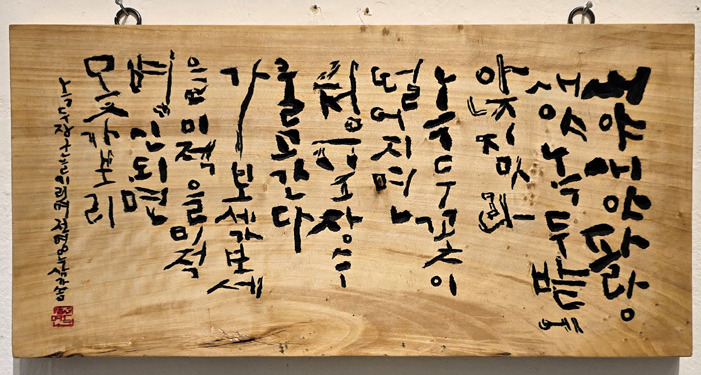 새야새야파랑
새야녹두밭에
앉지마라
녹두꽃이
떨어지면
청포장수
울고간다
가보세가보세
을미적을미적
병신되면
못가보리
녹두장군을기리며